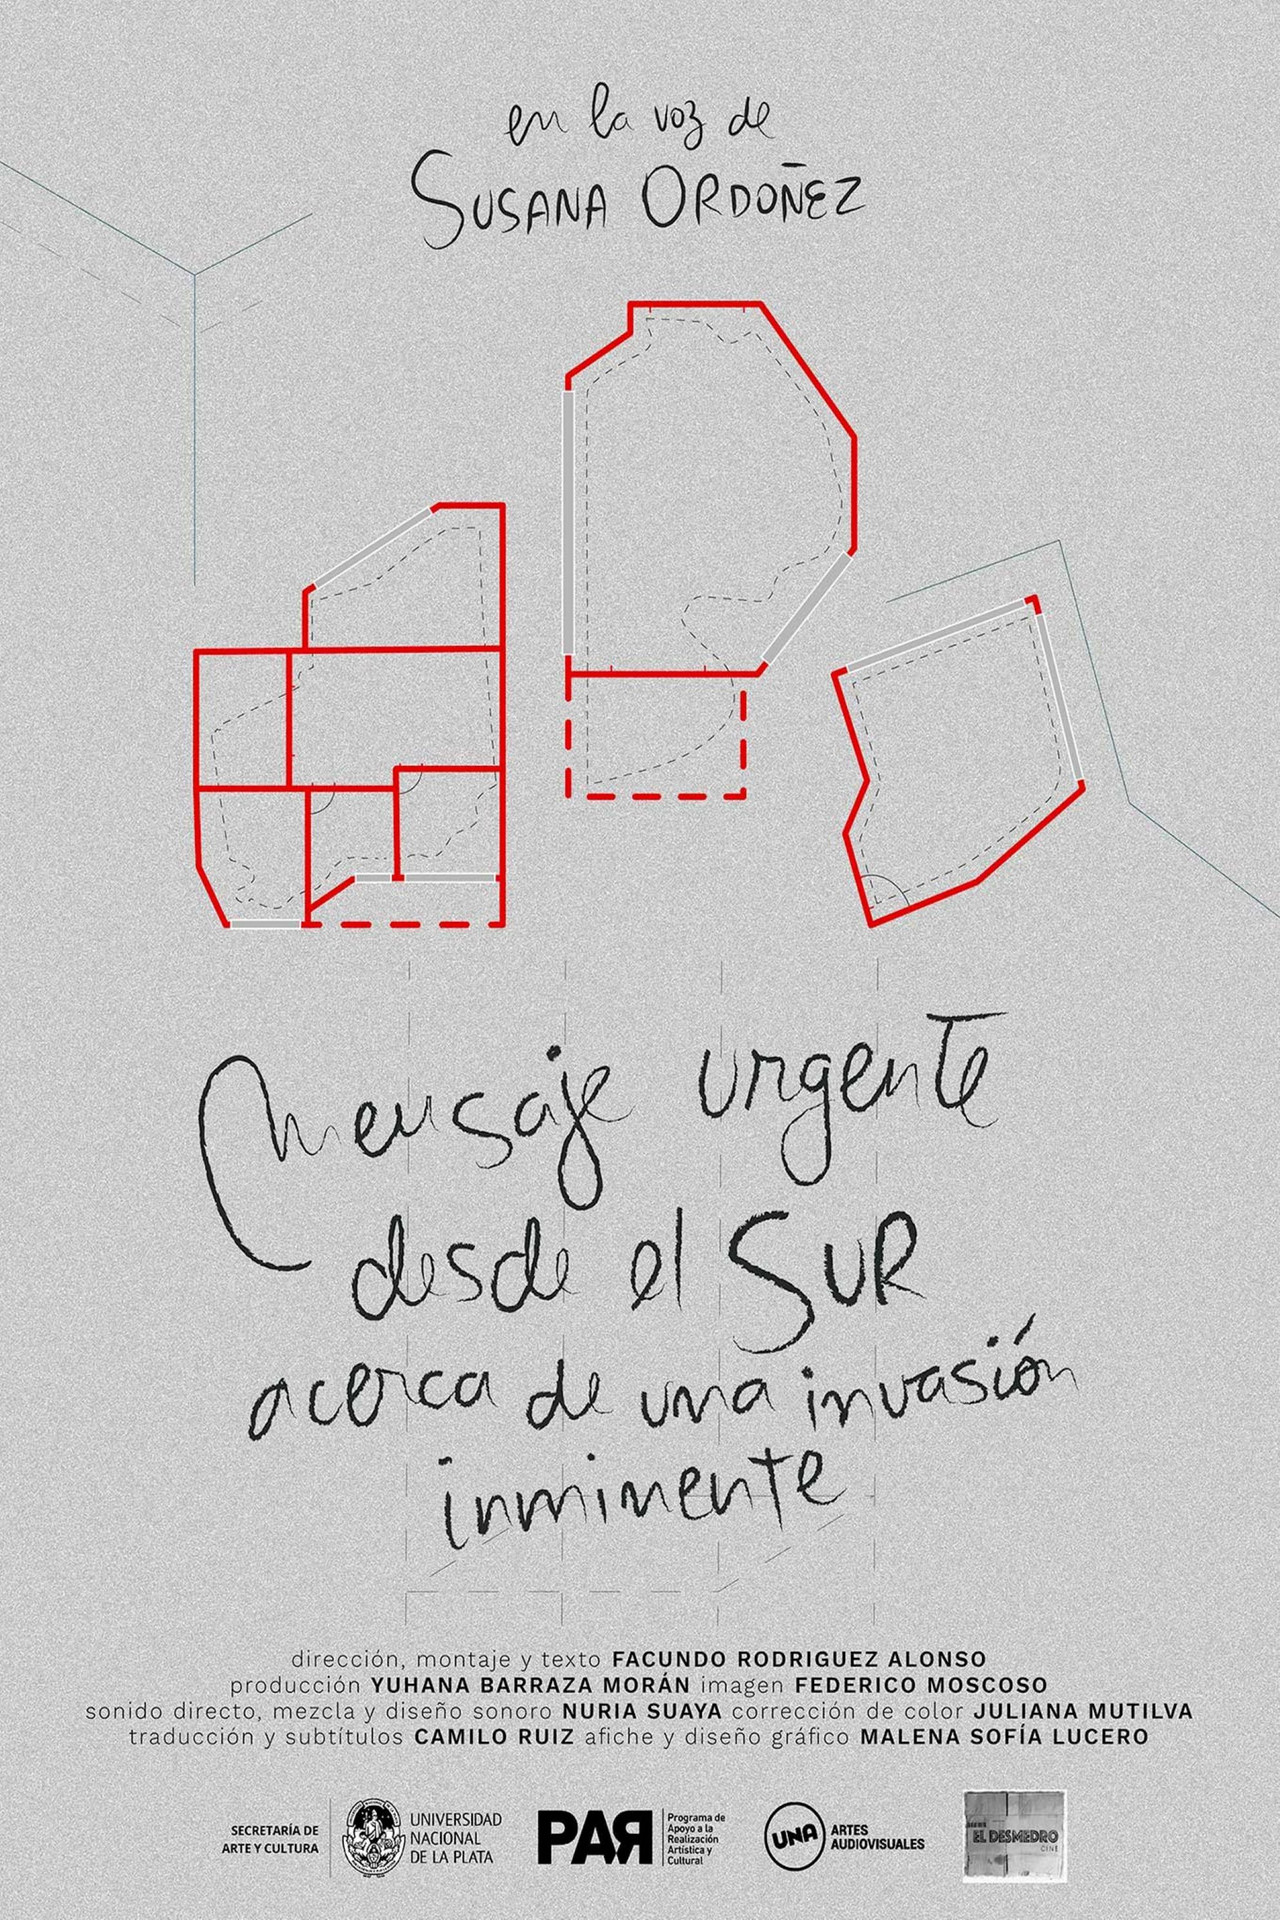 en la voz de
SUSANA ORDOÑEZ
Mensaje urgente
desde el SUR
acerca de una invasión
inminente
dirección, montaje y texto FACUNDO RODRIGUEZ ALONSO
producción YUHANA BARRAZA MORÁN imagen FEDERICO MOSCOSO
sonido directo, mezcla y diseño sonoro NURIA SUAYA corrección de color JULIANA MUTILVA
traducción y subtítulos CAMILO RUIZ afiche y diseño gráfico MALENA SOFÍA LUCERO
SECRETARÍA DE
ARTE Y CULTURA
UNIVERSIDAD
NACIONAL
DE LA PLATA
PAR
Programa de
Apoyo a la
Realización
Artística y
Cultural
UNA
ARTES
AUDIOVISUALES
EL DESMEDRO
CINE